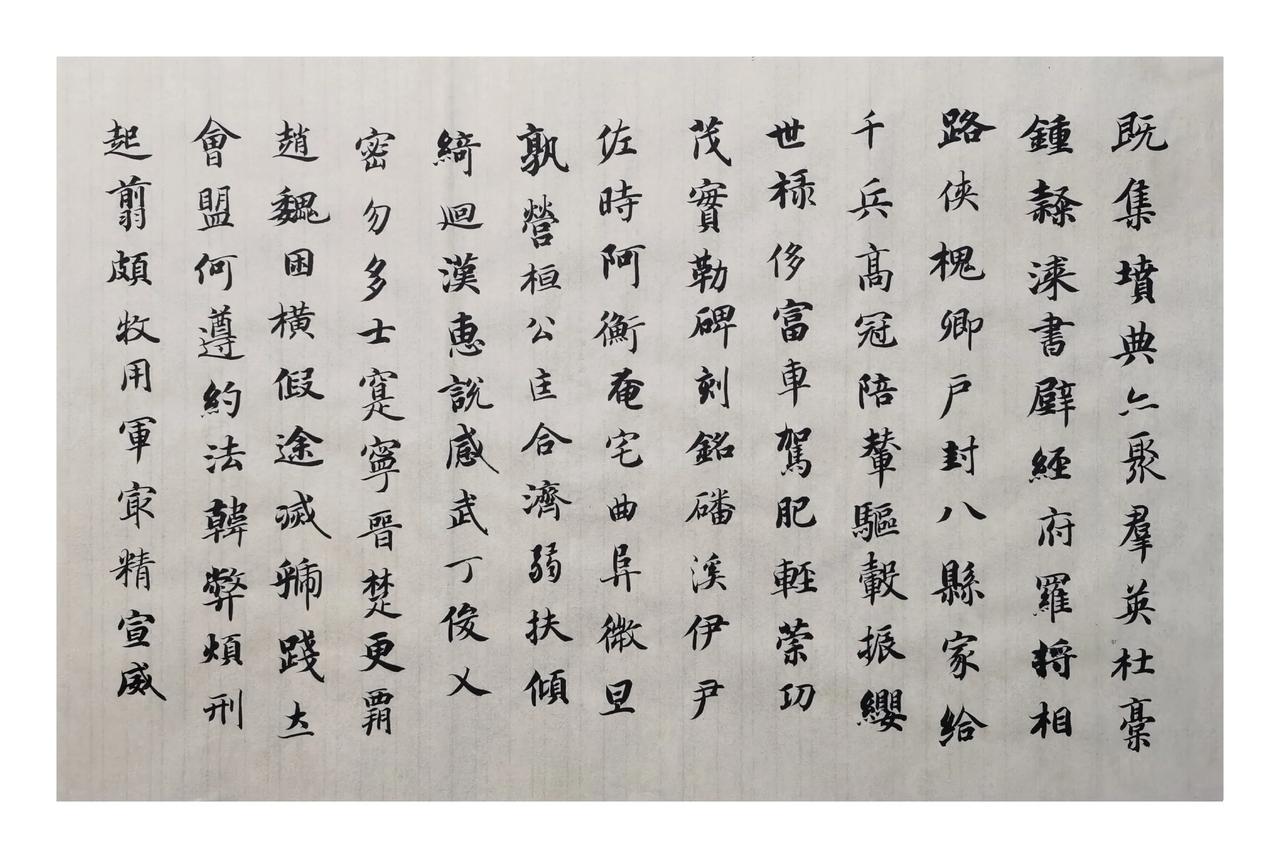 既集墳典亦聚羣英杜稾
鍾隸漆書壁經府羅將相
路俠槐卿戶封八縣家給
千兵高冠陪輦驅轂振纓
世祿侈富車駕肥輕策功
茂實勒碑刻銘磻溪伊尹
佐時阿衡奄宅曲阜微旦
孰營桓公匡合濟弱扶傾
綺迴漢惠說感武丁俊乂
密勿多士寔寧晉楚更霸
趙魏困橫假途滅虢踐土
會盟何遵約法韓弊煩刑
起翦頗牧用軍㝡精宣威